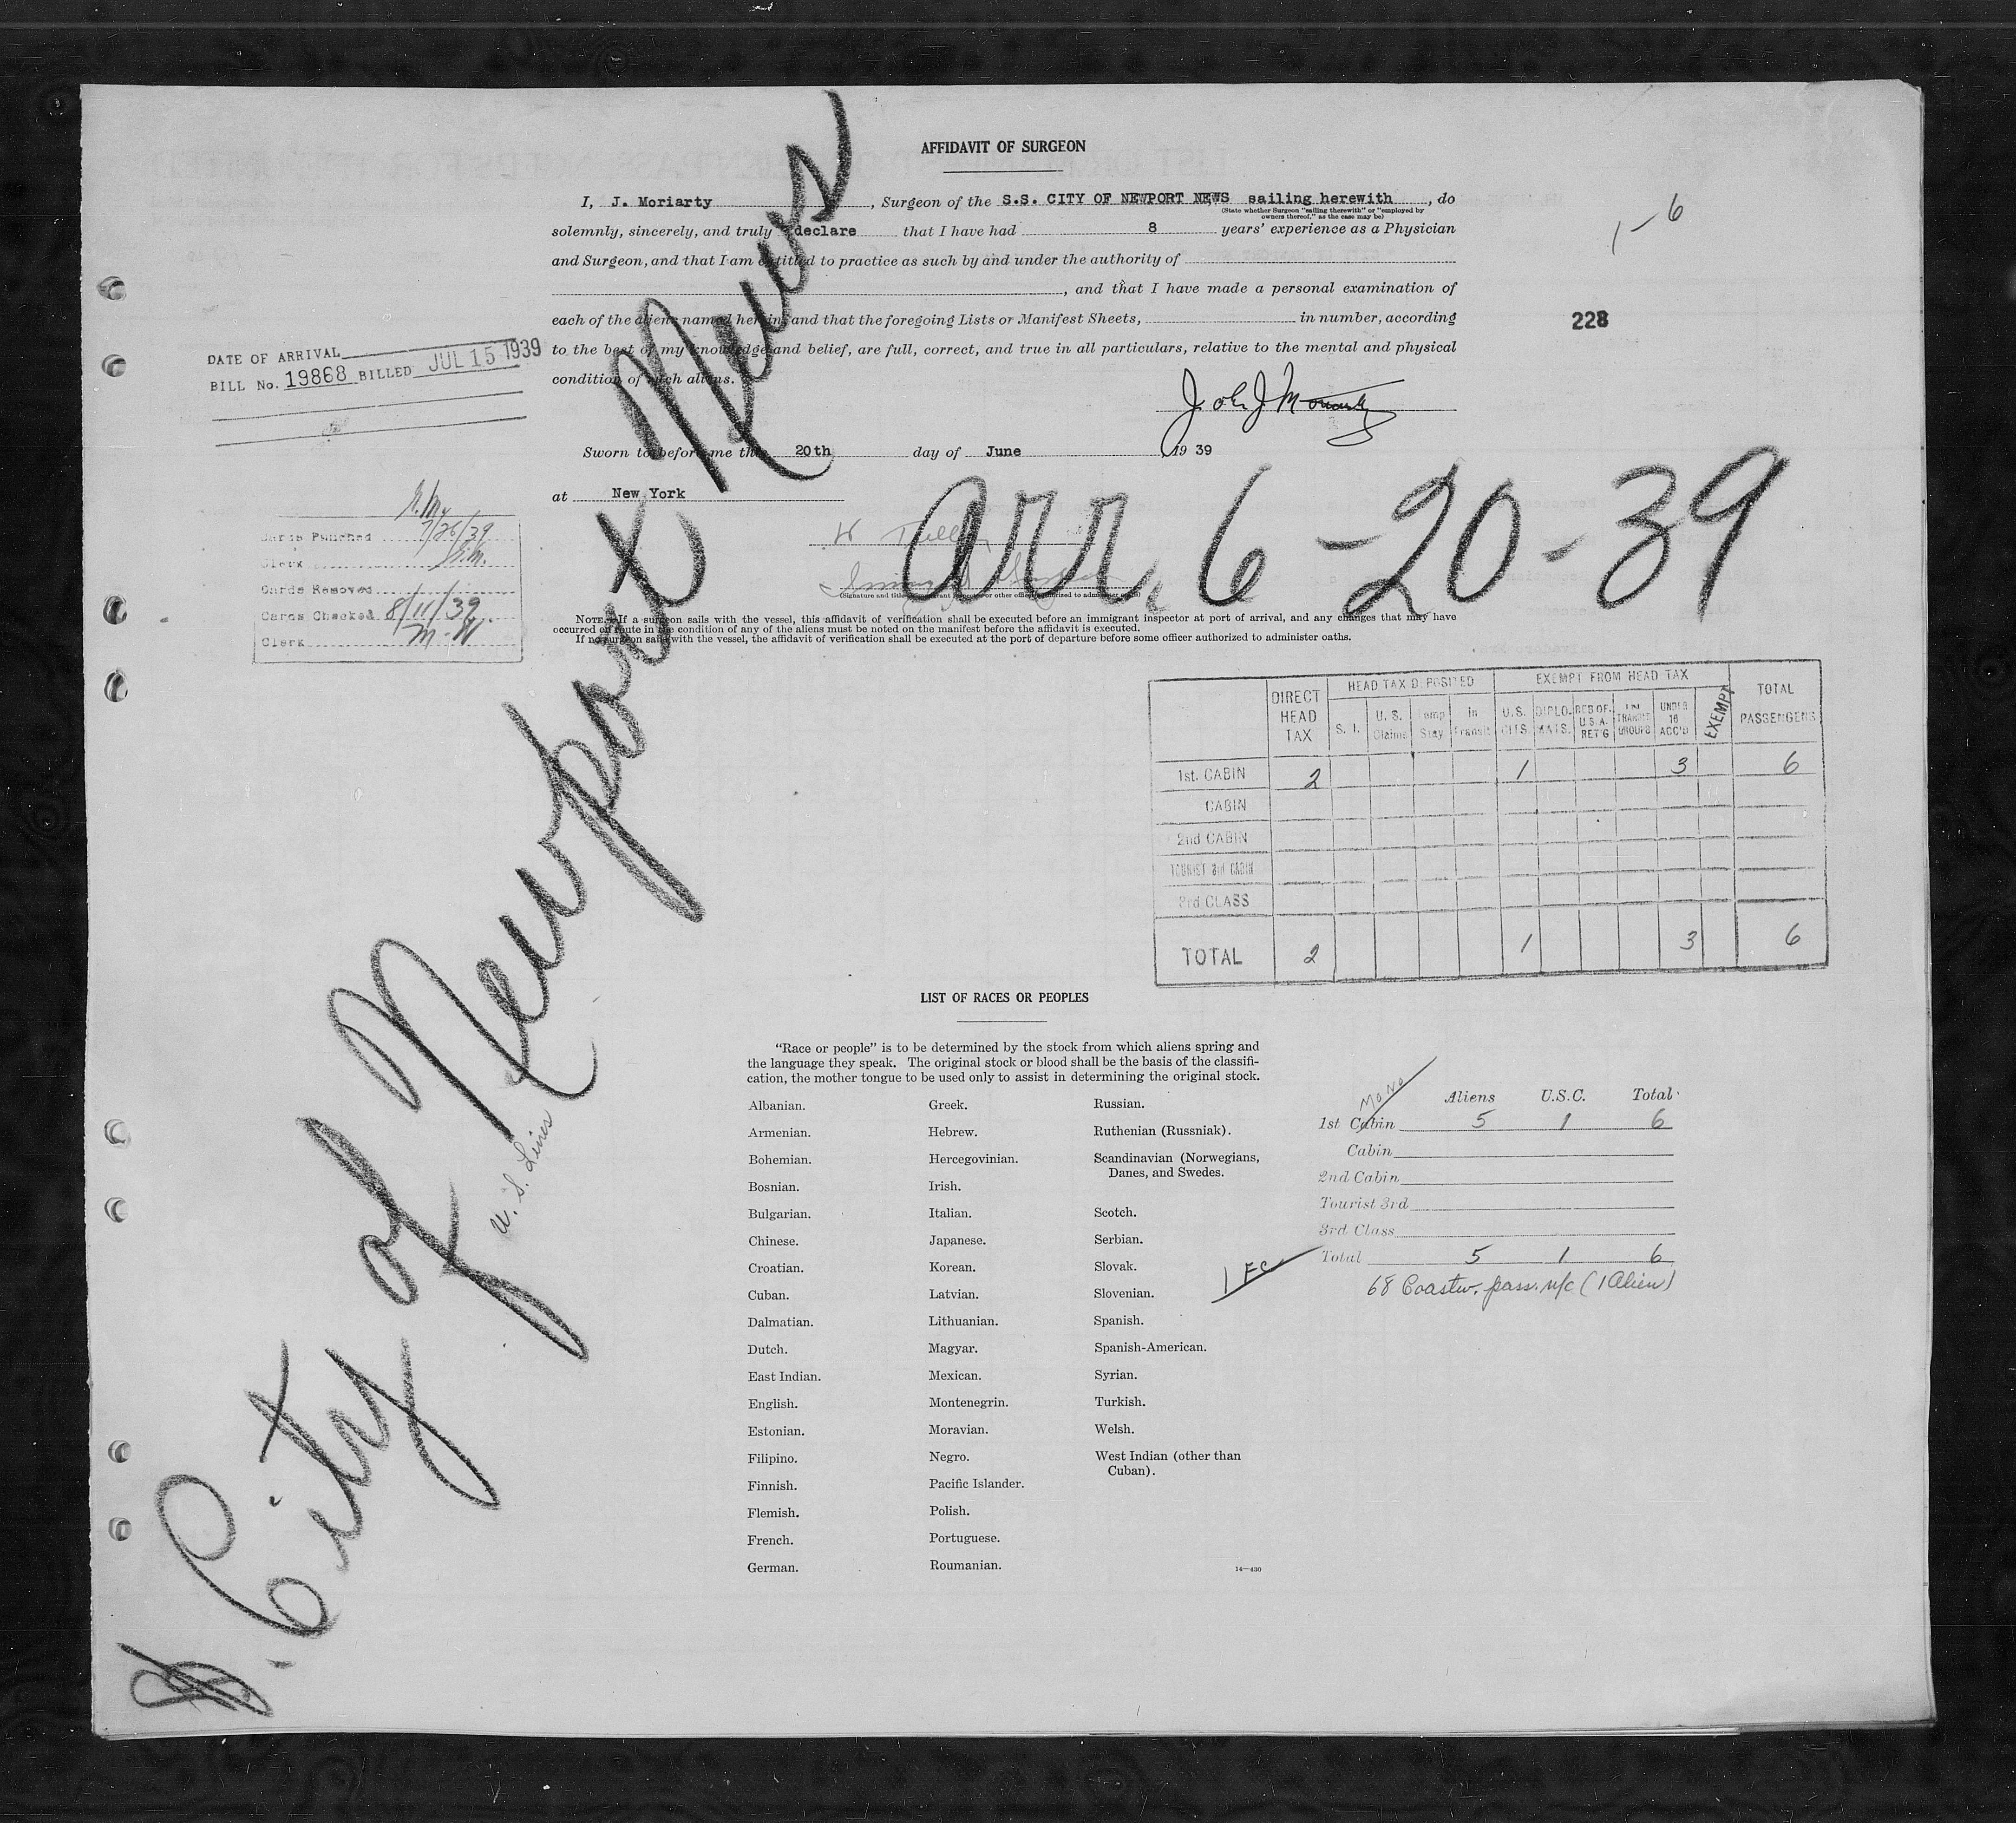 AFFIDAVIT OF SURGEON
I, J. Moriarty, Surgeon of the S.S. CITY OF NEWPORT NEWS sailing herewith, do
(State whether Surgeon "sailing therewith" or "employed by
owners thereof," as the case may be)
solemnly, sincerely, and truly declare that I have had 8 years' experience as a Physician
and Surgeon, and that I am entitled to practice as such by and under the authority of
, and that I have made a personal examination of
each of the aliens named herein, and that the foregoing Lists or Manifest Sheets, in number, according
to the best of my knowledge and belief, are full, correct, and true in all particulars, relative to the mental and physical
condition of such aliens.
John J Moriarty
Sworn to before me this 20th day of June, 19 39
at New York
(Signature and title of immigrant inspector or other officer authorized to administer oaths)
NOTE.—If a surgeon sails with the vessel, this affidavit of verification shall be executed before an immigrant inspector at port of arrival, and any changes that may have
occurred en route in the condition of any of the aliens must be noted on the manifest before the affidavit is executed.
If no surgeon sails with the vessel, the affidavit of verification shall be executed at the port of departure before some officer authorized to administer oaths.
1-6
228
DATE OF ARRIVAL
BILL No. 19868 BILLED JUL 15 1939
Cards Punched 7/26/39
Clerk
Cards Removed
Cards Checked 8/11/39
Clerk M-W
S. City of Newport News
U. S. Lines
arr. 6-20-39
DIRECT HEAD TAX
HEAD TAX DEPOSITED
EXEMPT FROM HEAD TAX
TOTAL PASSENGERS
S. I. U. S. Claims Temp Stay In Transit U.S. CITS. DIPLOMATS. RES OF U.S.A. RET'G IN TRANSIT GROUPS UNDER 16 ACC'D EXEMPT
1st. CABIN 2 1 3 6
CABIN
2nd CABIN
TOURIST 3rd CABIN
3rd CLASS
TOTAL 2 1 3 6
LIST OF RACES OR PEOPLES
"Race or people" is to be determined by the stock from which aliens spring and
the language they speak. The original stock or blood shall be the basis of the classifi-
cation, the mother tongue to be used only to assist in determining the original stock.
Albanian.
Armenian.
Bohemian.
Bosnian.
Bulgarian.
Chinese.
Croatian.
Cuban.
Dalmatian.
Dutch.
East Indian.
English.
Estonian.
Filipino.
Finnish.
Flemish.
French.
German.
Greek.
Hebrew.
Hercegovinian.
Irish.
Italian.
Japanese.
Korean.
Latvian.
Lithuanian.
Magyar.
Mexican.
Montenegrin.
Moravian.
Negro.
Pacific Islander.
Polish.
Portuguese.
Roumanian.
Russian.
Ruthenian (Russniak).
Scandinavian (Norwegians,
Danes, and Swedes.
Scotch.
Serbian.
Slovak.
Slovenian.
Spanish.
Spanish-American.
Syrian.
Turkish.
Welsh.
West Indian (other than
Cuban).
14—430
Mono
Aliens U.S.C. Total
1st Cabin 5 1 6
Cabin
2nd Cabin
Tourist 3rd
3rd Class
Total 5 1 6
1 FC
68 Coastw. pass. n/c (1 Alien)